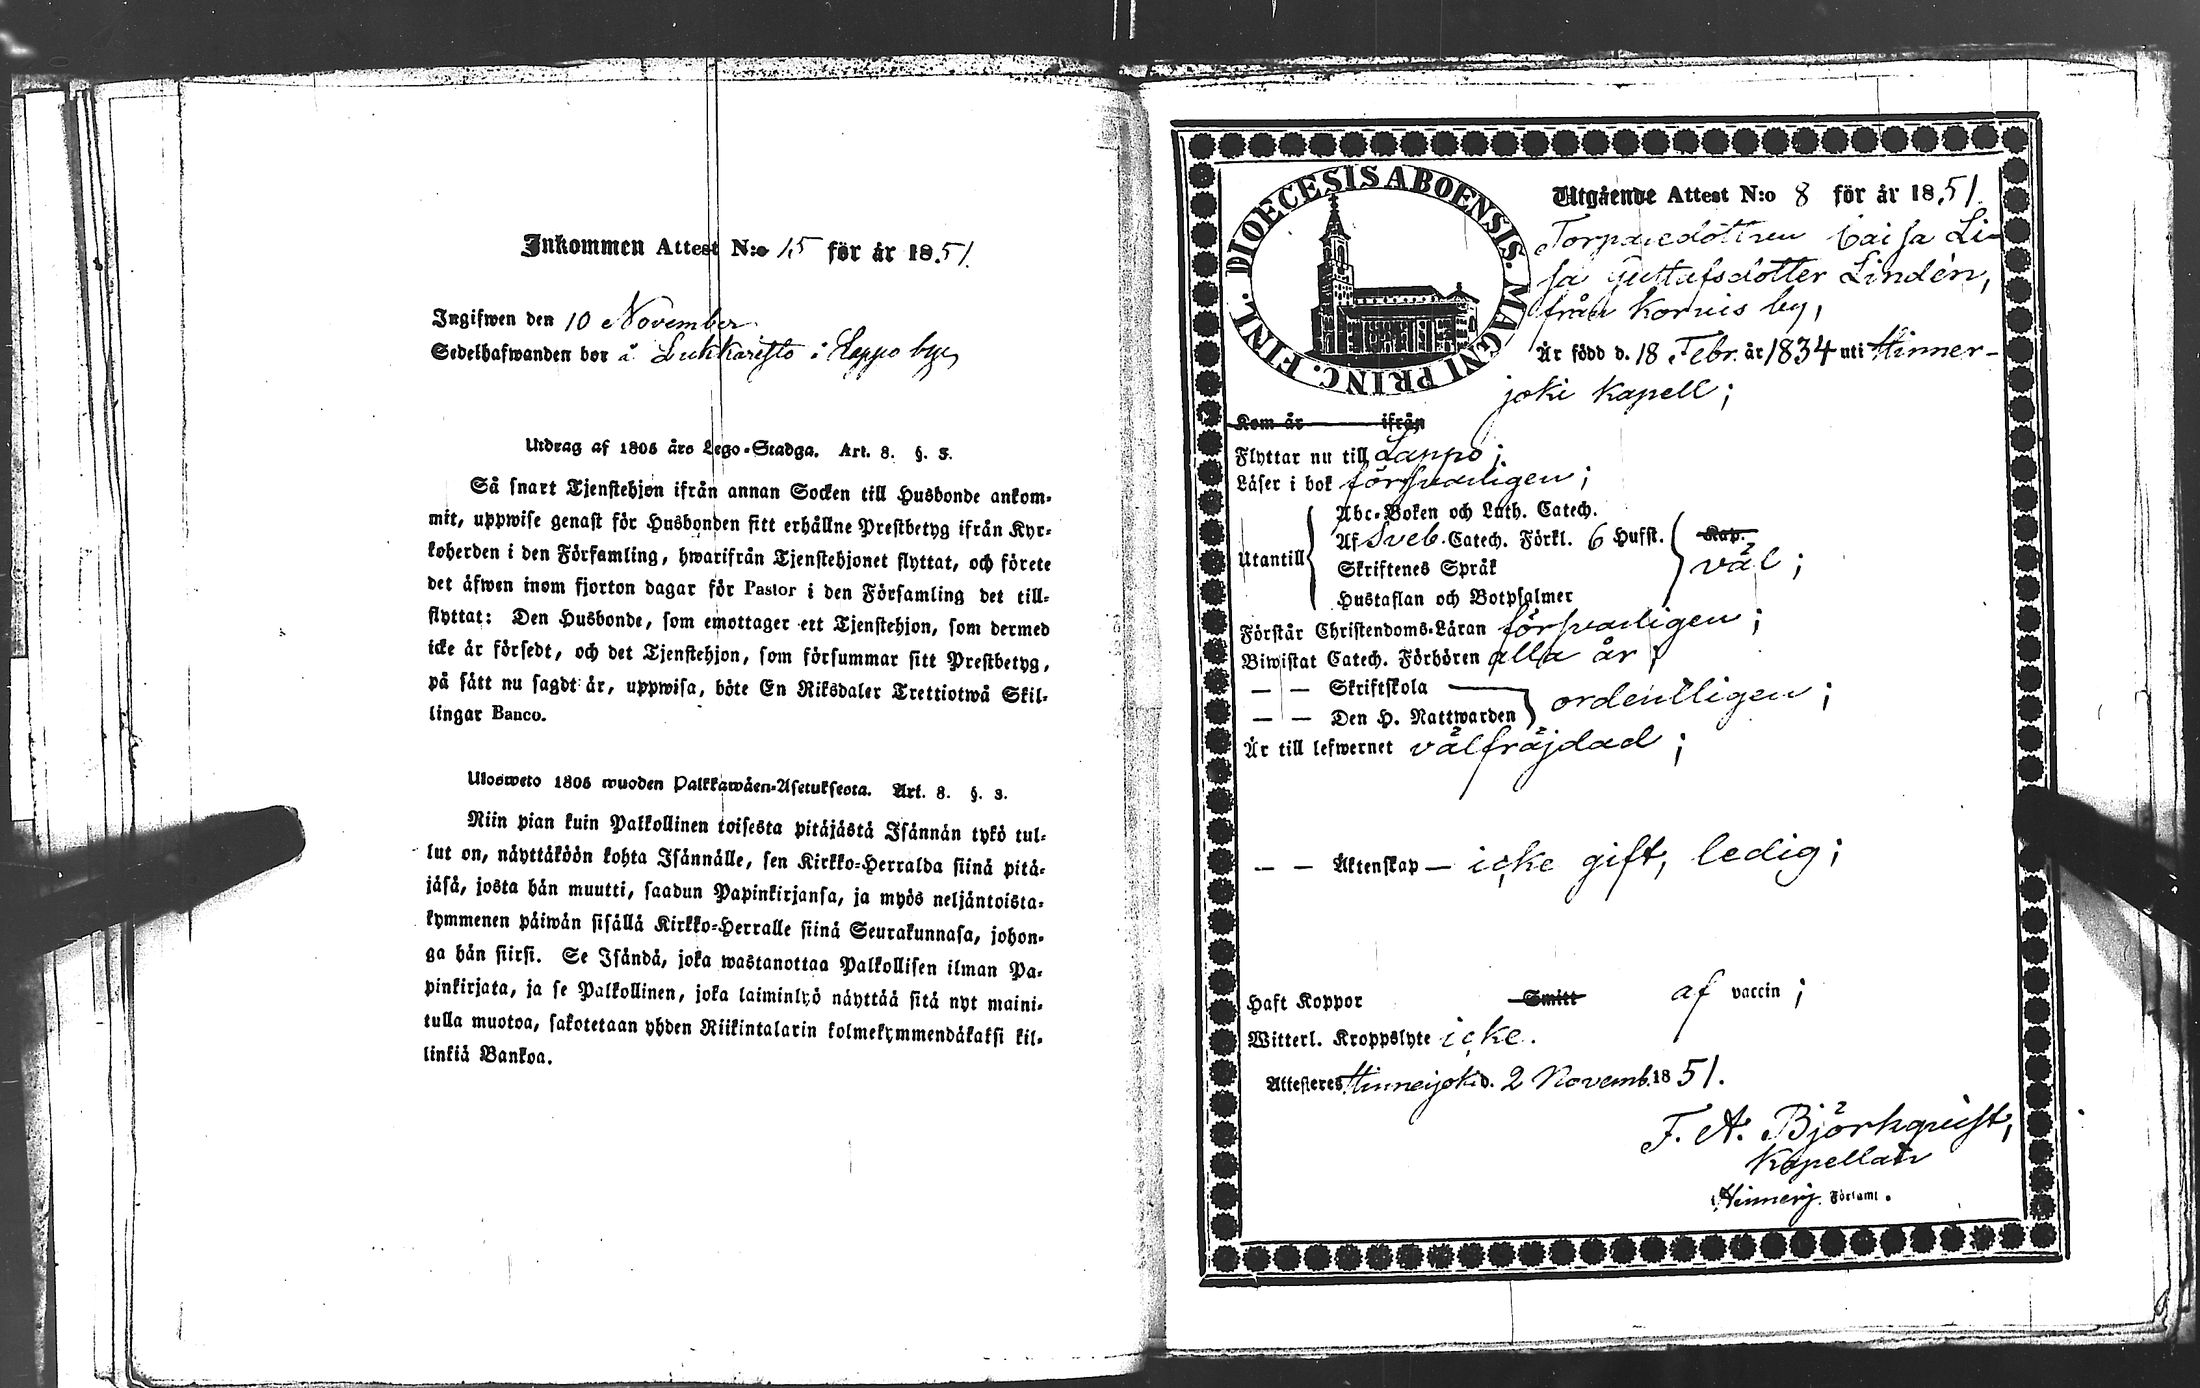 Inkommen Attest N:o 15 för år 1851.
Ingifwen den 10 November
Sedelhafwanden bor å Lukkaristo i Lappo by
Utdrag af 1805 års Lego-Stadga. Art. 8. §. 3.
Så snart Tjenstehjon ifrån annan Socken till Husbonde ankom-
mit, uppwise genast för Husbonden sitt erhållne Prestbetyg ifrån Kyr-
koherden i den Församling, hwarifrån Tjenstehjonet flyttat, och förete
det äfwen inom fjorton dagar för Pastor i den Församling det till-
flyttat: Den Husbonde, som emottager ett Tjenstehjon, som dermed
icke är försedt, och det Tjenstehjon, som försummar sitt Prestbetyg,
på sätt nu sagdt är, uppwisa, böte En Riksdaler Trettiotwå Skil-
lingar Banco.
Ulosweto 1805 wuoden Palkkawäen-Asetuksesta. Art. 8. §. 3.
Niin pian kuin Palkollinen toisesta pitäjästä Isännän tykö tul-
lut on, näyttäköön kohta Isännälle, sen Kirkko-Herralda siinä pitä-
jäsä, josta hän muutti, saadun Papinkirjansa, ja myös neljäntoista-
kymmenen päiwän sisällä Kirkko-Herralle siinä Seurakunnasa, johon-
ga hän siirsi. Se Isändä, joka wastanottaa Palkollisen ilman Pa-
pinkirjata, ja se Palkollinen, joka laiminlyö näyttää sitä nyt maini-
tulla muotoa, sakotetaan yhden Riikintalarin kolmekymmendäkaksi kil-
linkiä Bankoa.
DIOECESIS ABOENSIS. MAGNI PRINC. FINL.
Utgående Attest N:o 8 för år 1851.
Torparedottren Caisa Li-
sa Gustafsdotter Lindén,
från Korvis by,
Är född d. 18 Febr. år 1834 uti Hinner-
joki Kapell;
Kom år ifrån
Flyttar nu till Lappo;
Läser i bok försvarligen;
Abc-Boken och Luth. Catech.
Utantill Af Sveb. Catech. Förkl. 6 Hufst. Kap. väl;
Skriftenes Språk
Hustaflan och Botpsalmer
Förstår Christendoms-Läran försvarligen;
Biwistat Catech. Förhören alla år;
— — Skriftskola
— — Den H. Nattwarden ordentligen;
Är till lefwernet välfräjdad;
— — Äktenskap — icke gift, ledig;
Haft Koppor Smitt af vaccin;
Witterl. Kroppslyte icke.
Attesteres Hinnerjoki d. 2 Novemb. 1851.
F. A. Björkqvist,
Kapellan
i Hinnerj. Församl.